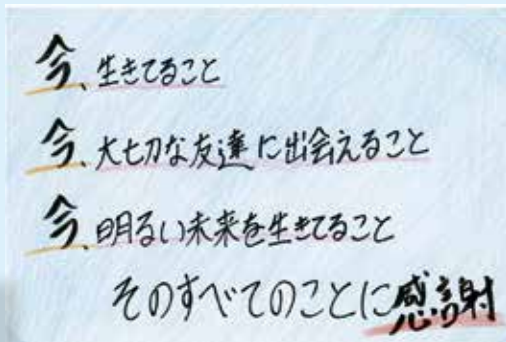 今、生きてること
今、大切な友達に出会えること
今、明るい未来を生きてること
そのすべてのことに感謝